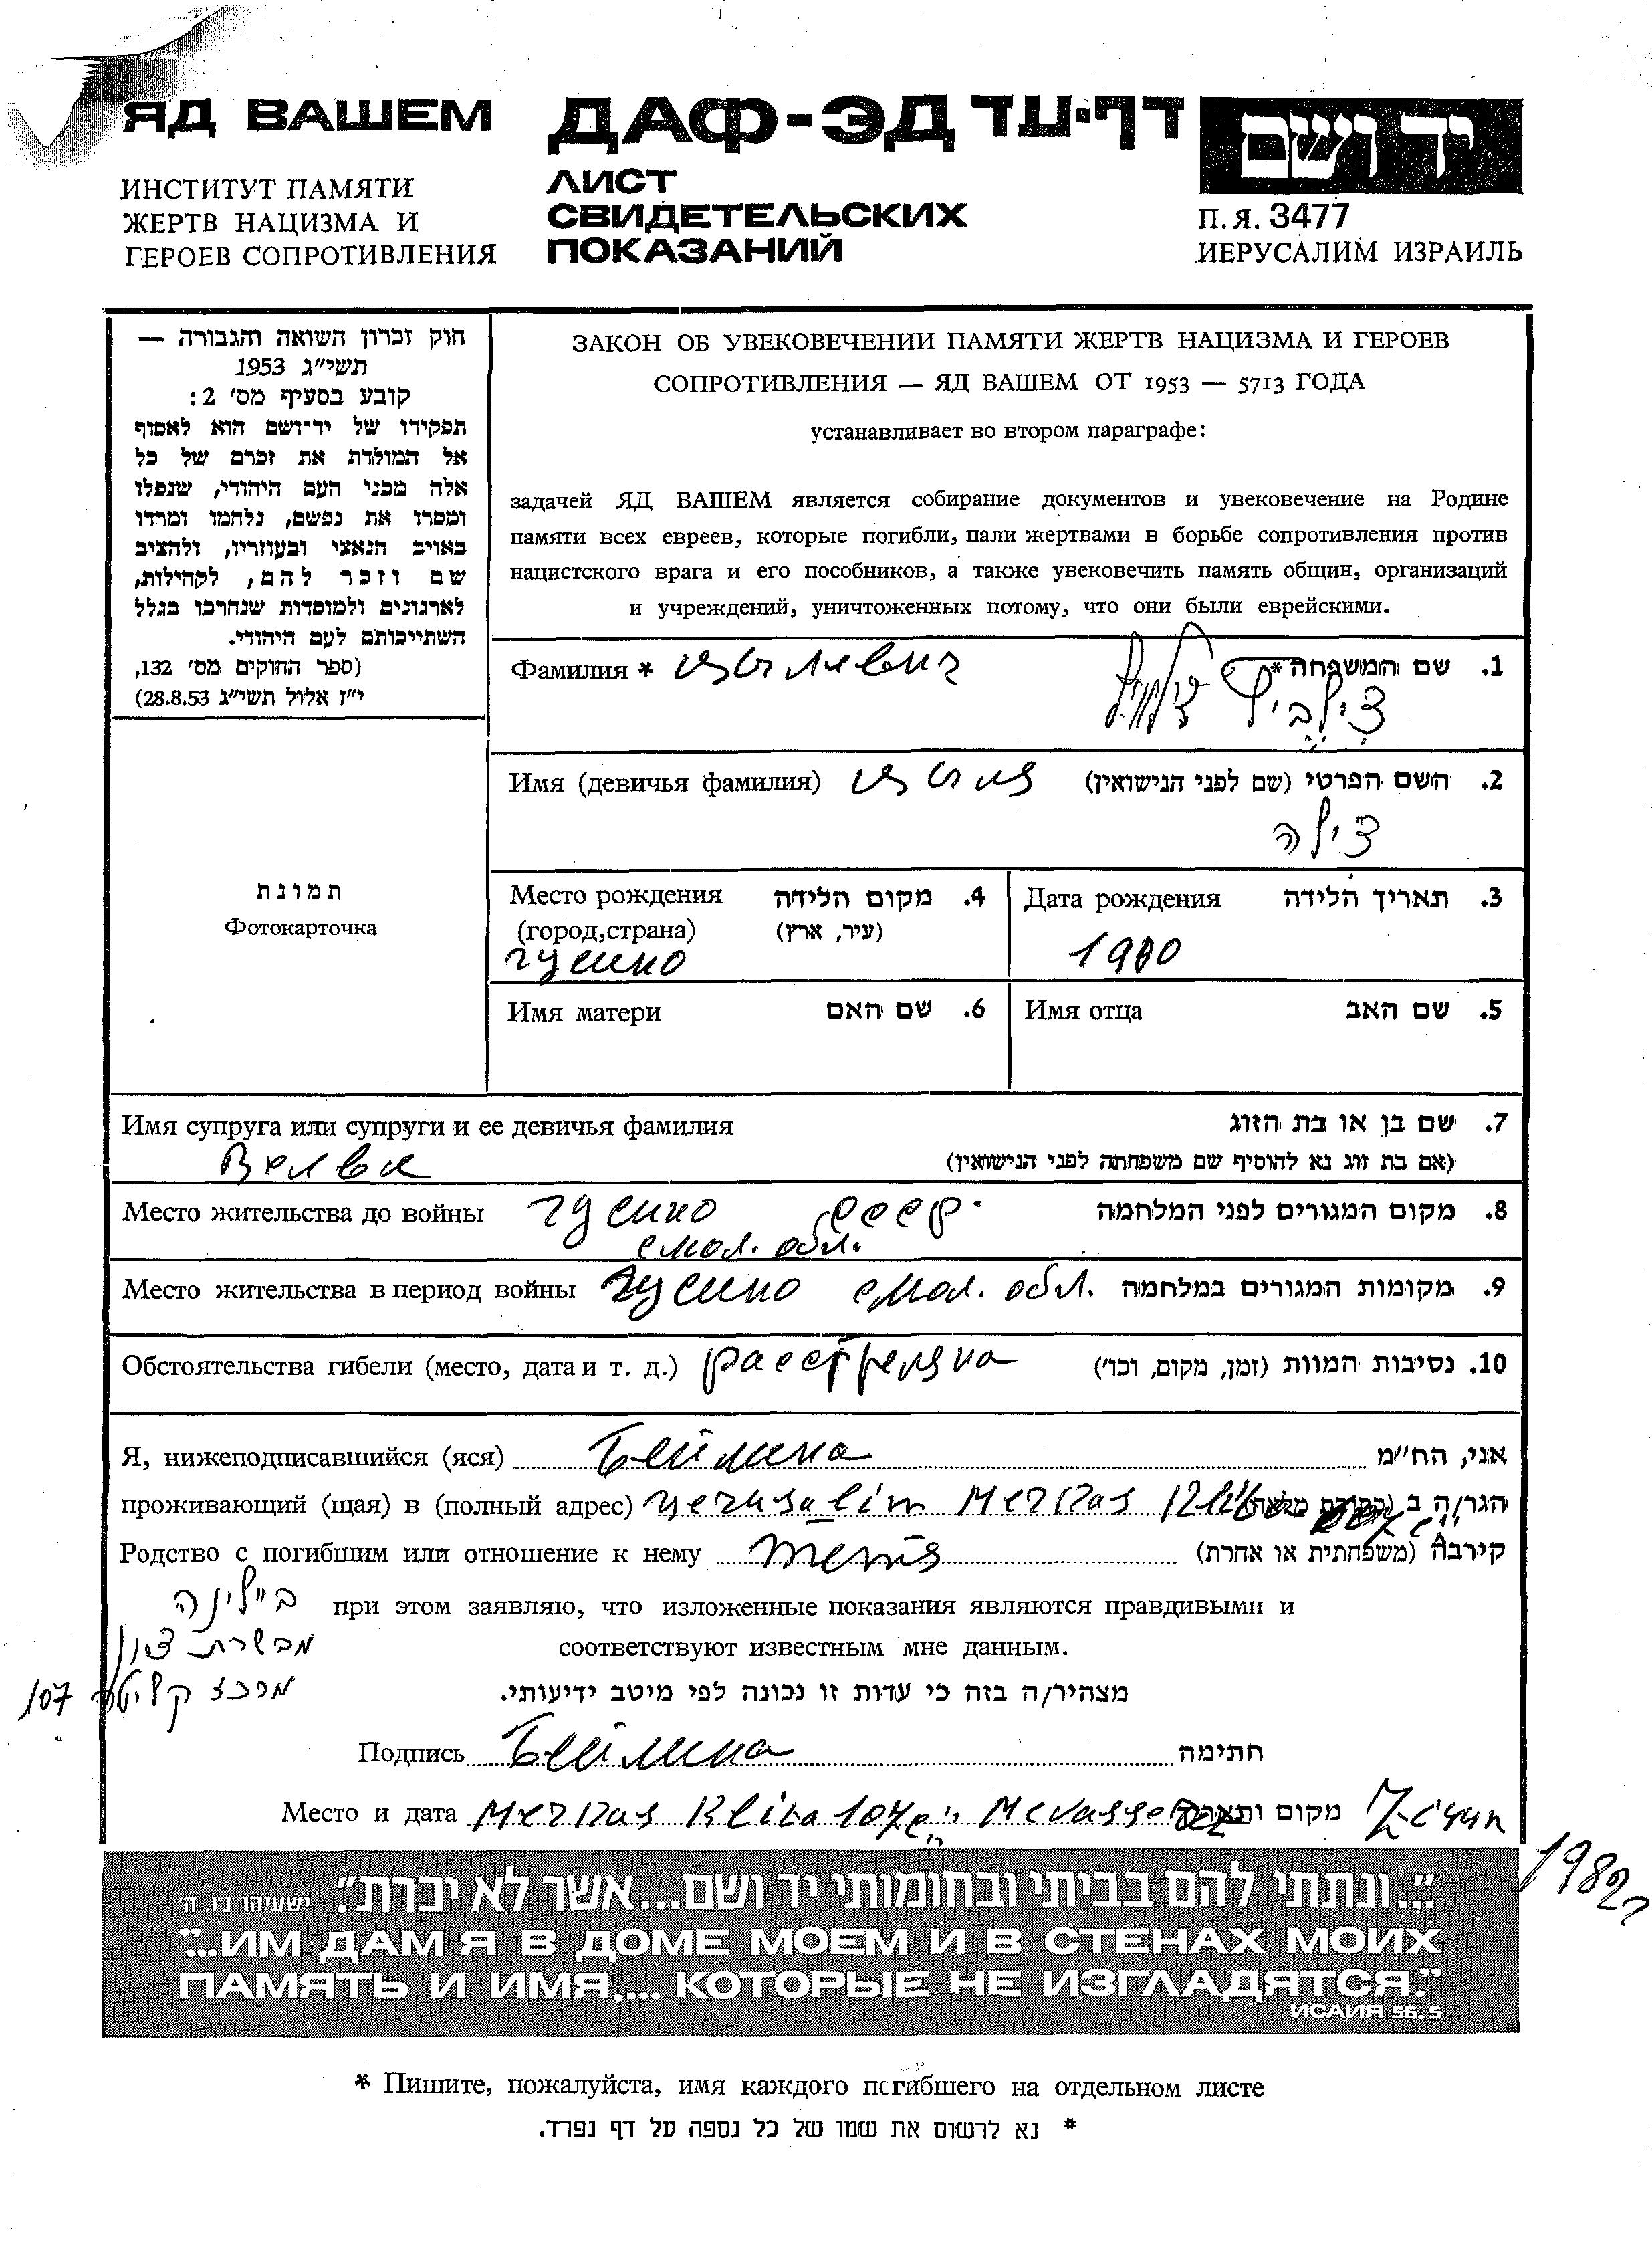 ЯД ВАШЕМ
ИНСТИТУТ ПАМЯТИ
ЖЕРТВ НАЦИЗМА И
ГЕРОЕВ СОПРОТИВЛЕНИЯ
ДАФ-ЭД דף-עד
ЛИСТ
СВИДЕТЕЛЬСКИХ
ПОКАЗАНИЙ
יד ושם
П.Я. 3477
ИЕРУСАЛИМ ИЗРАИЛЬ
חוק זכרון השואה והגבורה —
תשי״ג 1953
קובע בסעיף מס׳ 2:
תפקידו של יד־ושם הוא לאסוף
אל המולדת את זכרם של כל
אלה מבני העם היהודי, שנפלו
ומסרו את נפשם, נלחמו ומרדו
באויב הנאצי ובעוזריו, ולהציב
שם וזכר להם, לקהילות,
לארגונים ולמוסדות שנחרבו בגלל
השתייכותם לעם היהודי.
(ספר החוקים מס׳ 132,
י״ז אלול תשי״ג 28.8.53)
ЗАКОН ОБ УВЕКОВЕЧЕНИИ ПАМЯТИ ЖЕРТВ НАЦИЗМА И ГЕРОЕВ
СОПРОТИВЛЕНИЯ — ЯД ВАШЕМ ОТ 1953 — 5713 ГОДА
устанавливает во втором параграфе:
задачей ЯД ВАШЕМ является собирание документов и увековечение на Родине
памяти всех евреев, которые погибли, пали жертвами в борьбе сопротивления против
нацистского врага и его пособников, а также увековечить память общин, организаций
и учреждений, уничтоженных потому, что они были еврейскими.
Фамилия * Цывлевич 1. שם המשפחה*
צילביץ
Имя (девичья фамилия) Циля 2. השם הפרטי (שם לפני הנישואין)
צילה
תמונת
Фотокарточка
Место рождения 4. מקום הלידה
(город,страна) (עיר, ארץ)
гусино
Дата рождения 3. תאריך הלידה
1900
Имя матери 6. שם האם
Имя отца 5. שם האב
Имя супруга или супруги и ее девичья фамилия 7. שם בן או בת הזוג
Велвл (אם בת זוג נא להוסיף שם משפחתה לפני הנישואין)
Место жительства до войны гусино ссср. 8. מקום המגורים לפני המלחמה
смол. обл.
Место жительства в период войны гусино смол. обл. 9. מקומות המגורים במלחמה
Обстоятельства гибели (место, дата и т. д.) расстреляна 10. נסיבות המוות (זמן, מקום, וכו׳)
Я, нижеподписавшийся (яся) Бейлина אני, הח״מ
проживающий (щая) в (полный адрес) yerusalim Merkas הגר/ה ב
Родство с погибшим или отношение к нему קירבה (משפחתית או אחרת)
ביילינה
при этом заявляю, что изложенные показания являются правдивыми и
מבשרת ציון
соответствуют известным мне данным.
107 מרכז קליטה
מצהיר/ה בזה כי עדות זו נכונה לפי מיטב ידיעותי.
Подпись Бейлина חתימה
Место и дата Merkas Klita 107 Mevasseret מקום ותאריך
1982г
״...ונתתי להם בביתי ובחומותי יד ושם...אשר לא יכרת״. ישעיהו נ״ו ה׳
"...ИМ ДАМ Я В ДОМЕ МОЕМ И В СТЕНАХ МОИХ
ПАМЯТЬ И ИМЯ,... КОТОРЫЕ НЕ ИЗГЛАДЯТСЯ."
ИСАИЯ 56.5
* Пишите, пожалуйста, имя каждого погибшего на отдельном листе
* נא לרשום את שמו של כל נספה על דף נפרד.